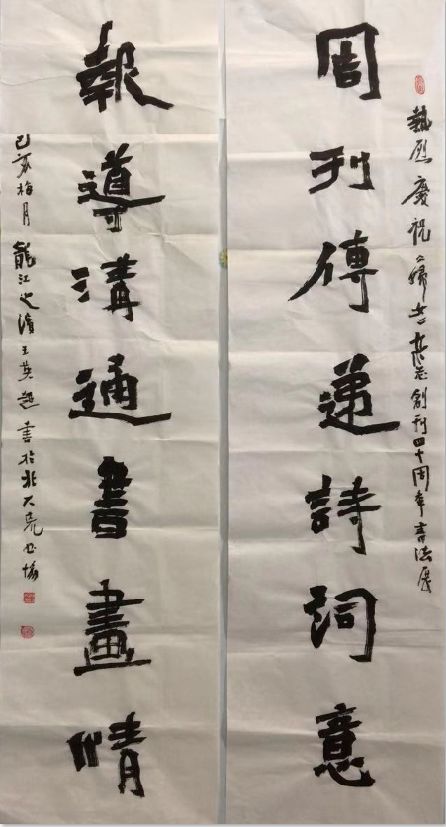 熱烈慶祝《婦女》雜志創刊四十周年書法展
周刊傳遞詩詞意
報導溝通書畫情
己亥梅月龍江之濱王英超書於北大荒书協